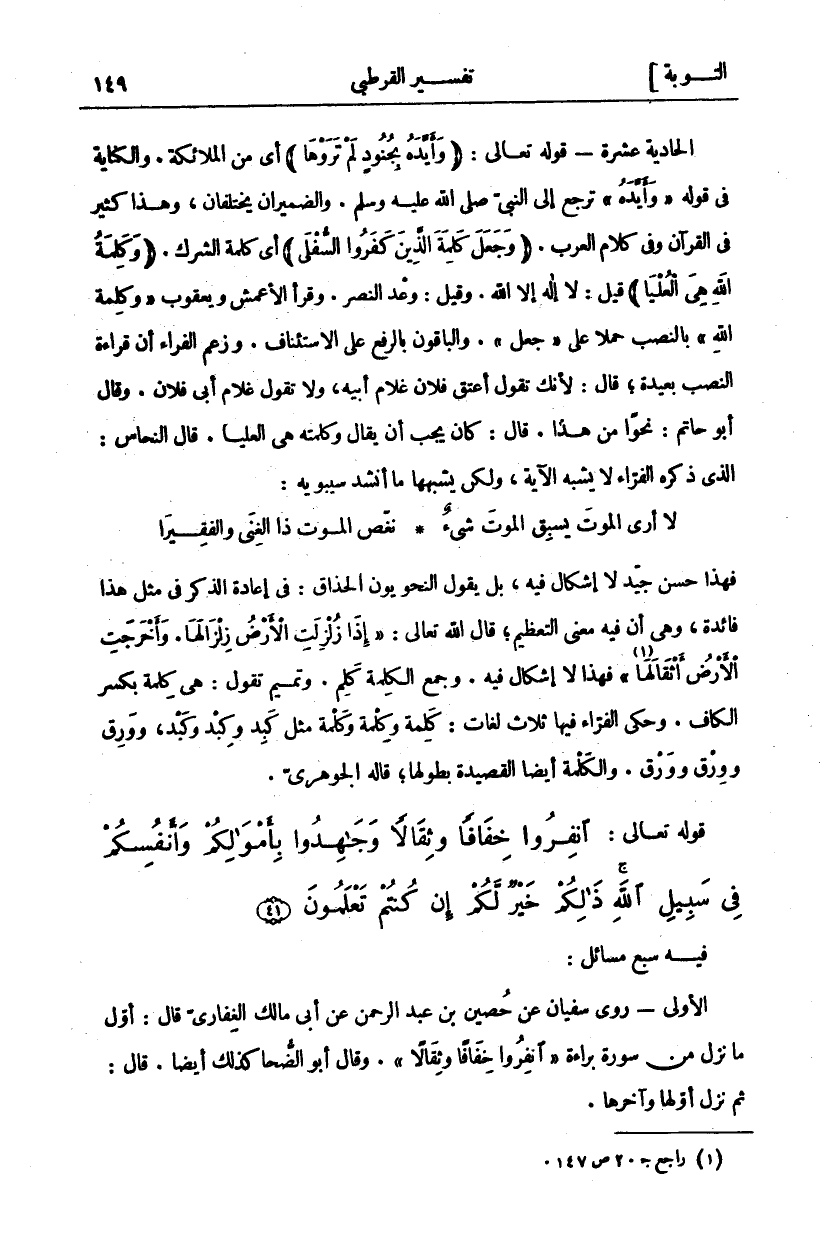 التـــوبة ]
تفســـير القرطبي
١٤٩
الحادية عشرة — قوله تعـالى : ﴿ وَأَيَّدَهُ بِجُنُودٍ لَمْ تَرَوْهَا ﴾ أى من الملائكة . والكناية
فى قوله « وَأَيَّدَهُ » ترجع إلى النبىّ صلى الله عليـه وسلم . والضميران يختلفان ، وهـذا كثير
فى القرآن وفى كلام العرب . ﴿ وَجَعَلَ كَلِمَةَ الَّذِينَ كَفَرُوا السُّفْلَى ﴾ أى كلمة الشرك . ﴿ وَكَلِمَةُ
اللهِ هِىَ الْعُلْيَا ﴾ قيل : لا إله إلا الله . وقيل : وعْد النصر . وقرأ الأعمش ويعقوب « وكلمة
اللهِ » بالنصب حملا على « جعل » . والباقون بالرفع على الاستئناف . وزعم الفراء أن قراءة
النصب بعيدة ؛ قال : لأنك تقول أعتق فلان غلام أبيه، ولا تقول غلام أبى فلان . وقال
أبو حاتم : نحوًا من هـذا . قال : كان يجب أن يقال وكلمته هى العليـا . قال النحاس :
الذى ذكره الفرّاء لا يشبه الآية ، ولكن يشبهها ما أنشد سيبويه :
لا أرى الموتَ يسبِق الموتَ شىءٌ * نغّص المـوت ذا الغِنَى والفقِـــيرَا
فهذا حسن جيّد لا إشكال فيه ، بل يقول النحويون الحذاق : فى إعادة الذكر فى مثل هذا
فائدة ، وهى أن فيه معنى التعظيم ؛ قال الله تعالى : « إِذَا زُلْزِلَتِ الْأَرْضُ زِلْزَالَهَا. وَأَخْرَجَتِ
الْأَرْضُ أَثْقَالَهَا (١) » فهذا لا إشكال فيه . وجمع الكلمة كَلِم . وتميـم تقول : هى كِلمة بكسر
الكاف . وحكى الفرّاء فيها ثلاث لغات : كَلِمة وكِلْمة وكَلْمة مثل كَبِد وكِبْد وكَبْد، ووَرِق
ووِرْق ووَرْق . والكَلْمة أيضا القصيدة بطولها؛ قاله الجوهرىّ .
قوله تعـالى : ٱنفِـرُوا خِفَافًا وَثِقَالًا وَجَـٰهِـدُوا بِأَمْوَٰلِكُمْ وَأَنفُسِـكُمْ
فِى سَبِيلِ ٱللَّهِ ۚ ذَٰلِكُمْ خَيْرٌ لَّكُمْ إِن كُنتُمْ تَعْلَمُونَ ﴿٤١﴾
فيـــه سبع مسائل :
الأولى — روى سفيان عن حُصين بن عبد الرحمن عن أبى مالك الغِفارىّ قال : أوّل
ما نزل من سورة براءة « ٱنفِرُوا خِفَافًا وَثِقَالًا » . وقال أبو الضُّحا كذلك أيضا . قال :
ثم نزل أوّلها وآخرها .
(١) راجع جـ ٢٠ ص ١٤٧ .